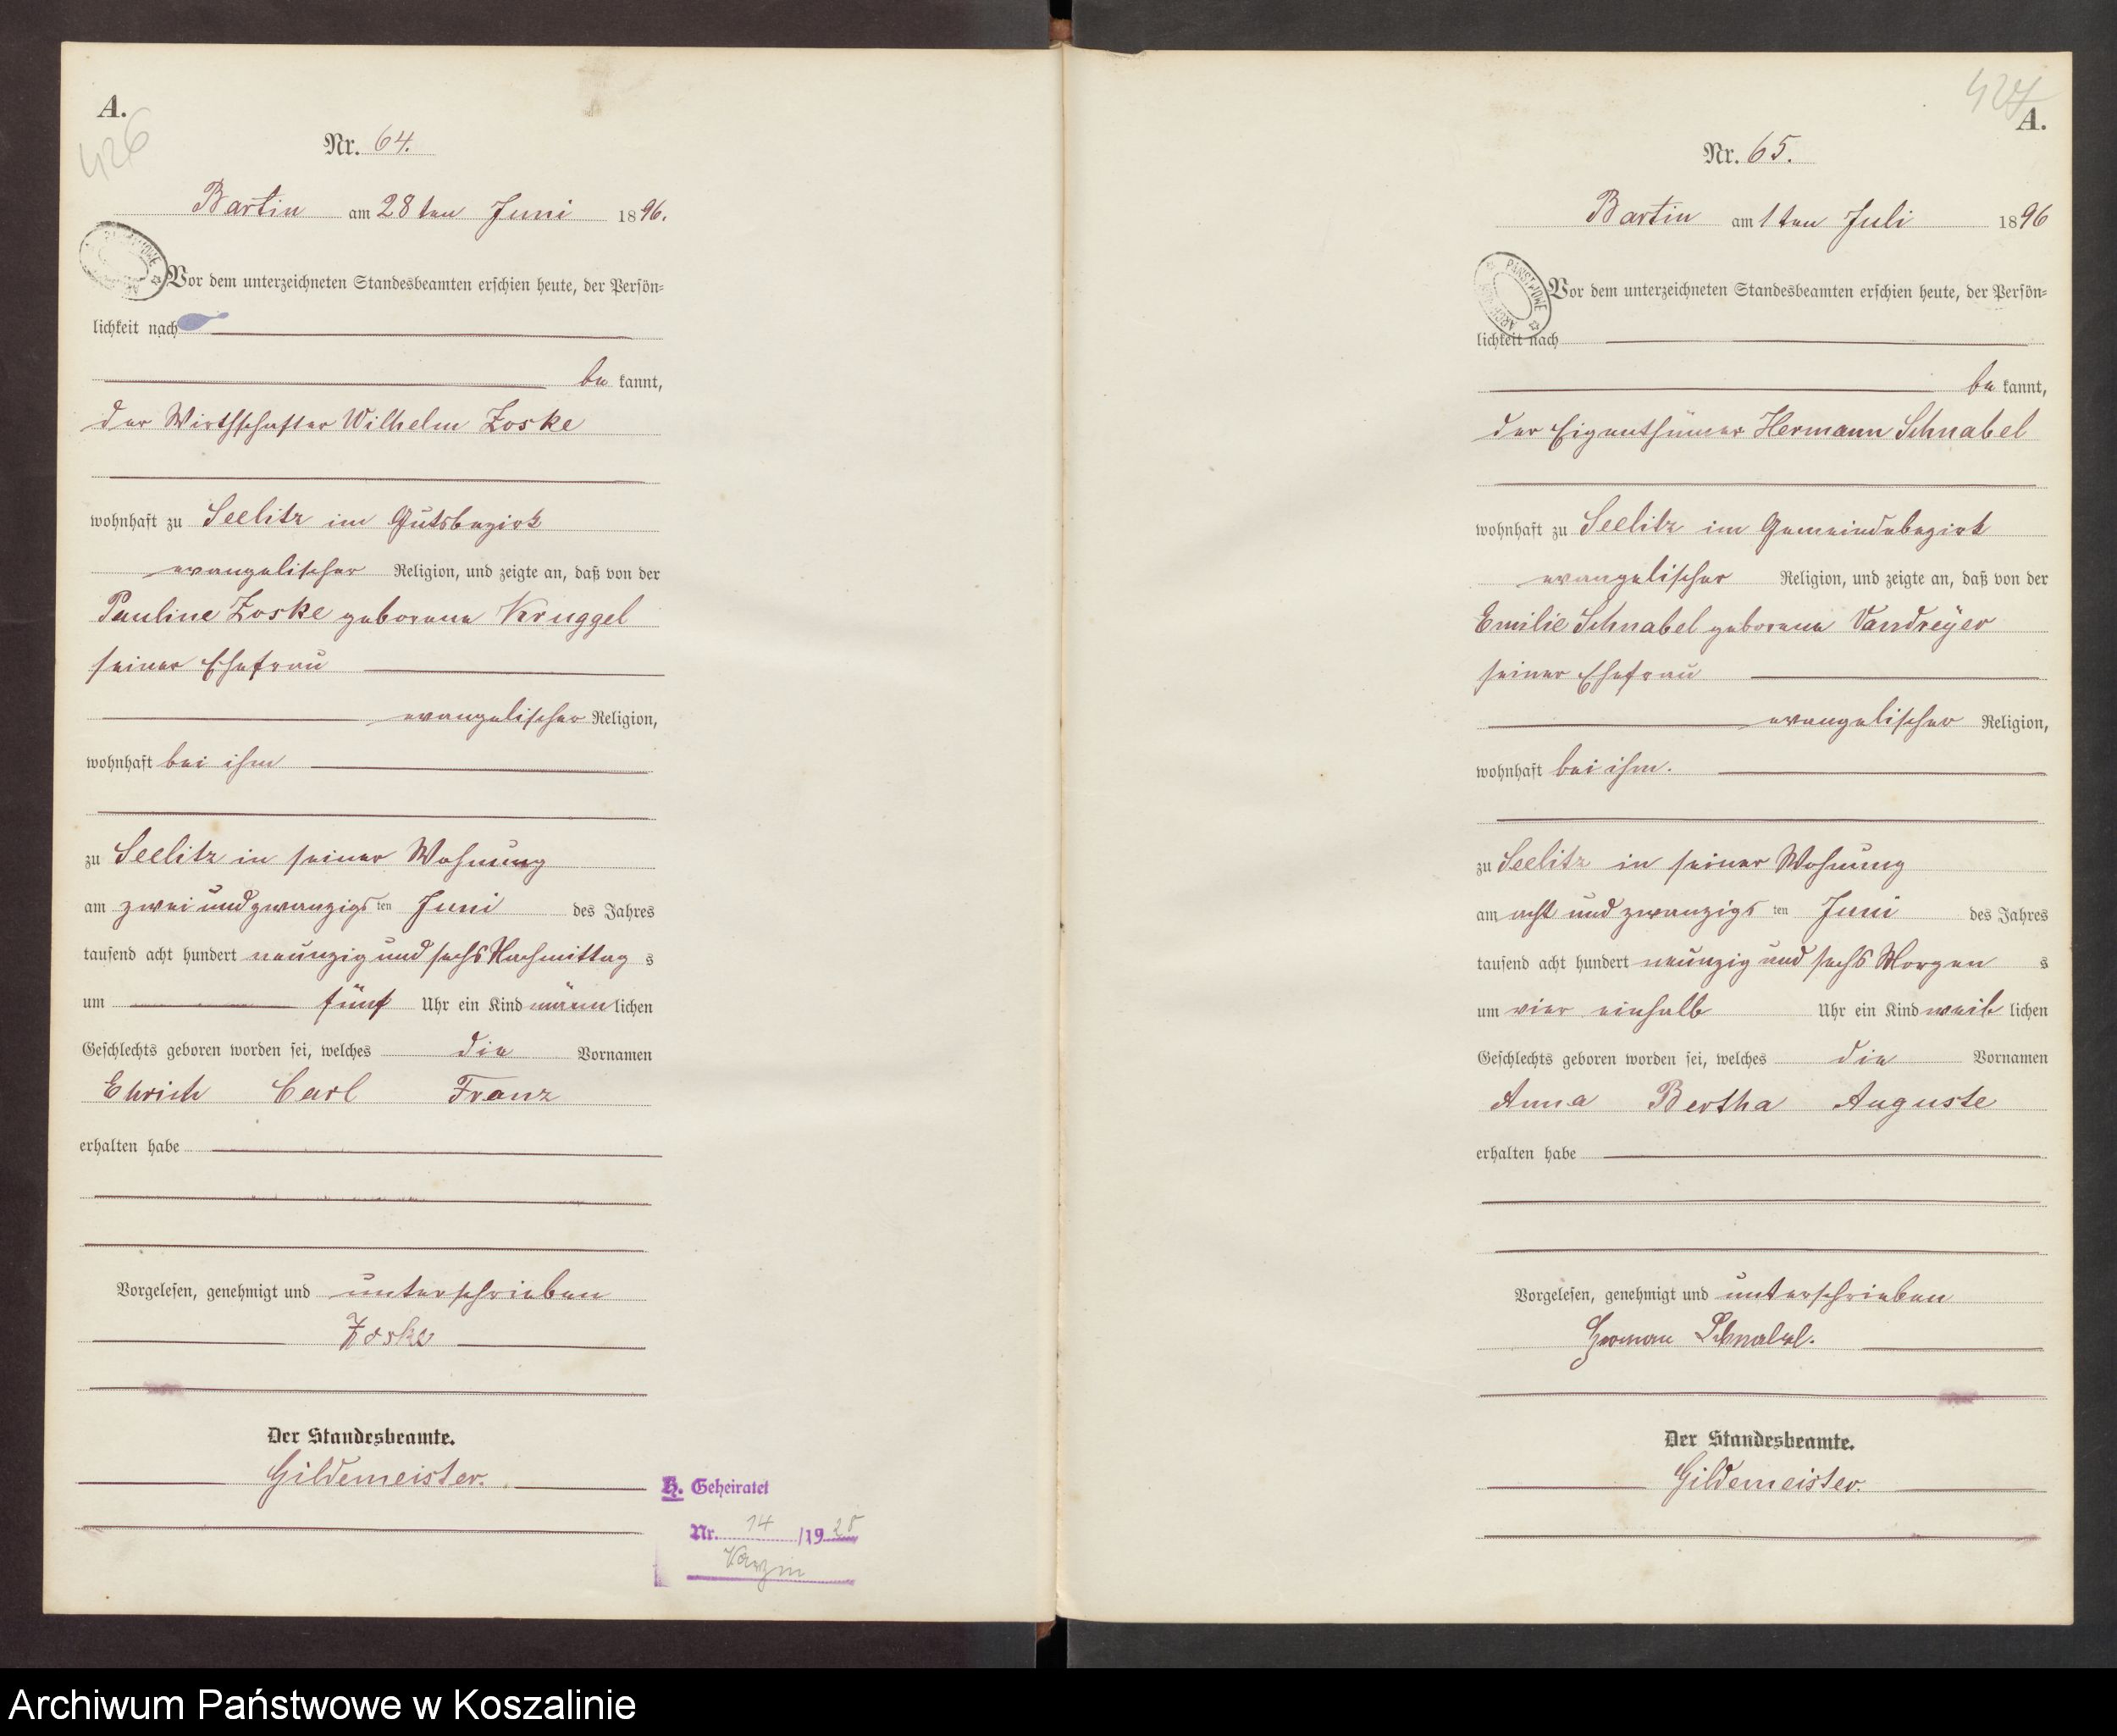 A.
426
Nr. 64.
Bartin am 28ten Juni 1896.
Vor dem unterzeichneten Standesbeamten erschien heute, der Persön=
lichkeit nach
be kannt,
der Wirthschafter Wilhelm Zoske
wohnhaft zu Seelitz im Gutsbezirk
evangelischer Religion, und zeigte an, daß von der
Pauline Zoske geborene Kruggel
seiner Ehefrau
evangelischer Religion,
wohnhaft bei ihm
zu Seelitz in seiner Wohnung
am zwei und zwanzigs ten Juni des Jahres
tausend acht hundert neunzig und sechs Nachmittag s
um fünf Uhr ein Kind männ lichen
Geschlechts geboren worden sei, welches die Vornamen
Ehrich Carl Franz
erhalten habe
Vorgelesen, genehmigt und unterschrieben
Zoske
Der Standesbeamte.
Gildemeister.
H. Geheiratet
Nr. 14 /19 25
Varzin
427
A.
Nr. 65.
Bartin am 1ten Juli 1896
PAŃSTWOWE
ARCH
Vor dem unterzeichneten Standesbeamten erschien heute, der Persön=
lichkeit nach
be kannt,
der Eigenthümer Hermann Schnabel
wohnhaft zu Seelitz im Gemeindebezirk
evangelischer Religion, und zeigte an, daß von der
Emilie Schnabel geborene Vandreÿer
seiner Ehefrau
evangelischer Religion,
wohnhaft bei ihm.
zu Seelitz in seiner Wohnung
am acht und zwanzigs ten Juni des Jahres
tausend acht hundert neunzig und sechs Morgen s
um vier einhalb Uhr ein Kind weib lichen
Geschlechts geboren worden sei, welches die Vornamen
Anna Bertha Auguste
erhalten habe
Vorgelesen, genehmigt und unterschrieben
Herman Schnabel.
Der Standesbeamte.
Gildemeister.
Archiwum Państwowe w Koszalinie